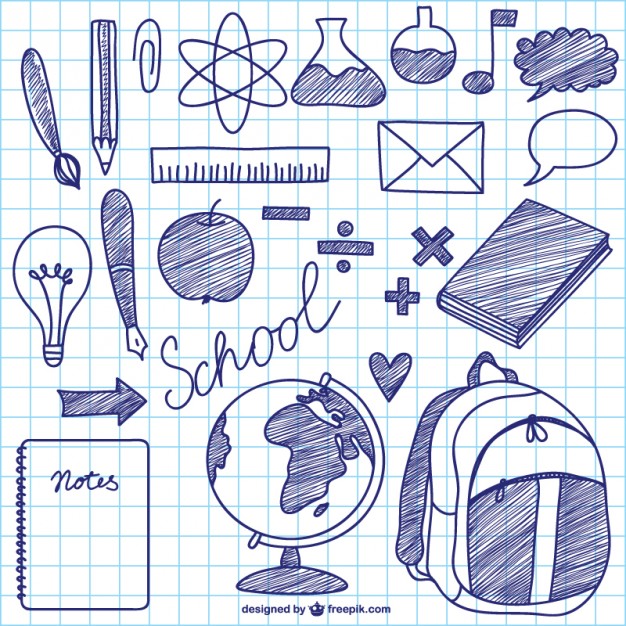 School
Notes
designed by freepik.com